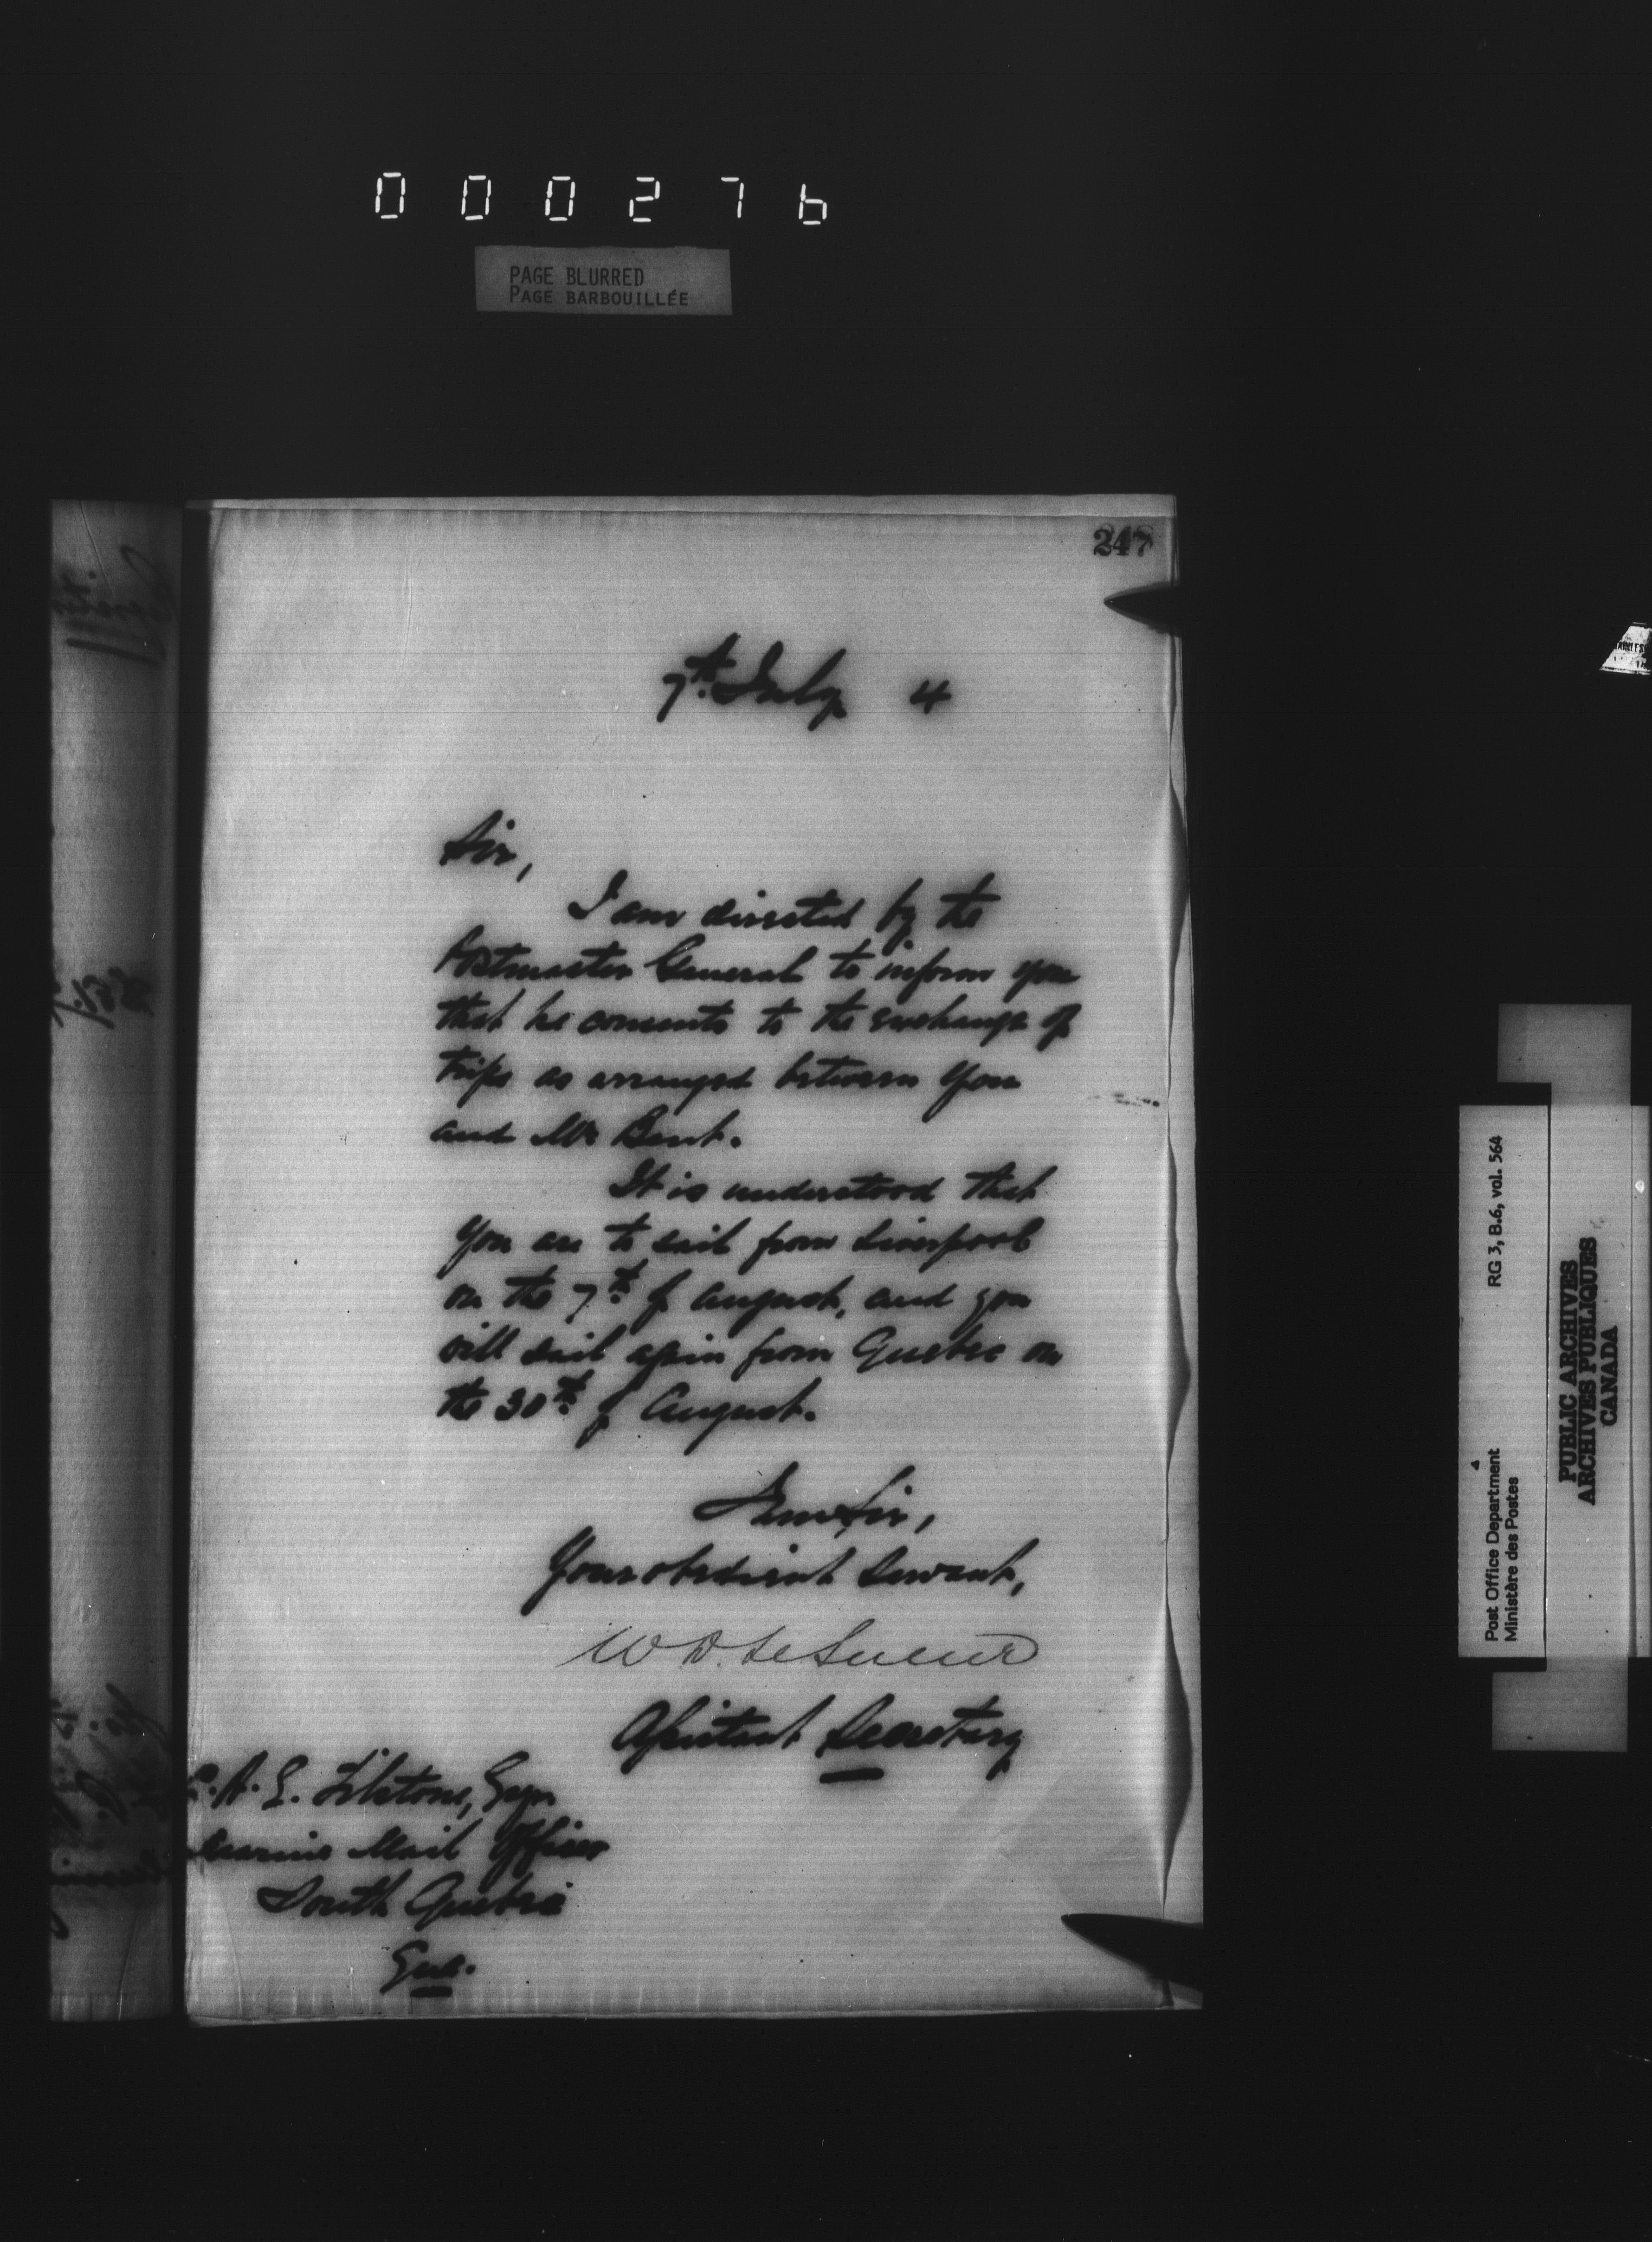 000276
PAGE BLURRED
PAGE BARBOUILLÉE
247
7th. July 4
Sir,
I am directed by the
Postmaster General to inform you
that he consents to the exchange of
trips as arranged between you
and Mr Bent.
It is understood that
you are to sail from Liverpool
on the 7th. of August, and you
will sail again from Quebec on
the 30th. of August.
I am Sir,
Your obedient Servant,
W D. LeSueur
Assistant Secretary
A. E. Esqr
Marine Mail Officer
South Quebec
Que.
RG 3, B.6, vol. 564
Post Office Department
Ministère des Postes
PUBLIC ARCHIVES
ARCHIVES PUBLIQUES
CANADA